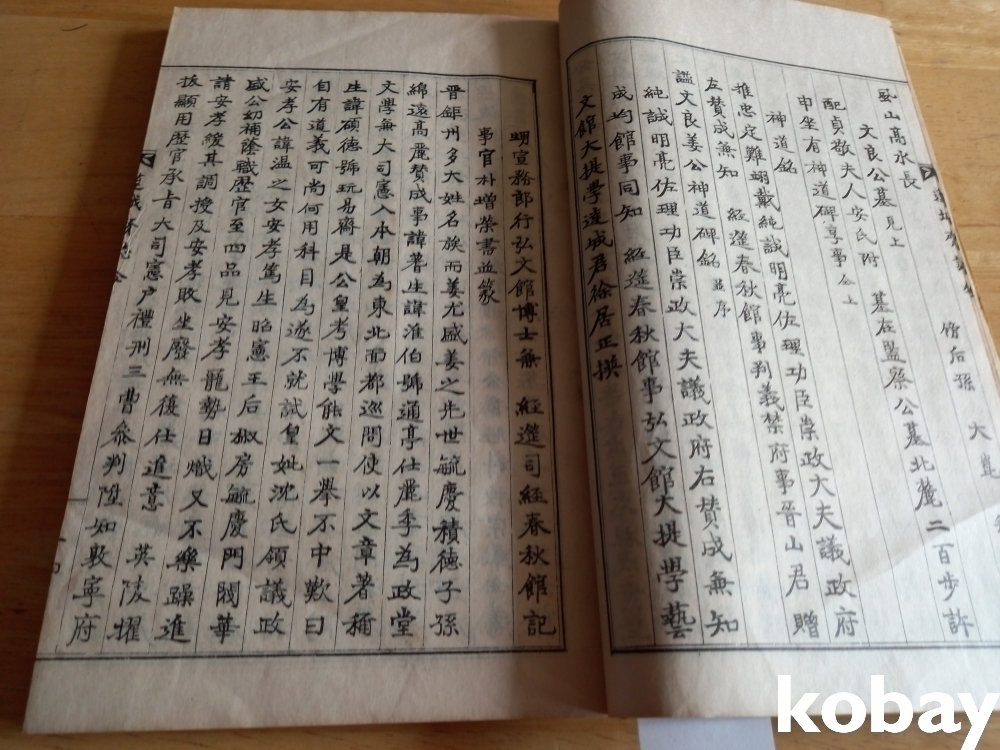 山高水長
傍后孫 大
文良公墓見上 墓在監察公墓北麓二百步許
配貞敬夫人安氏附
申坐有神道碑享事仝上
神道銘
推忠定難翊戴純誠明亮佐理功臣崇政大夫議政府
左贊成兼知 經筵春秋館事判義禁府事晉山君 贈
諡文良姜公神道碑銘 並序
純誠明亮佐理功臣崇政大夫議政府右贊成兼知
成均館事同知 經筵春秋館事弘文館大提學藝
文館大提學達城君徐居正撰
宣務郎行弘文館博士兼 經筵司經春秋館記
事官朴增榮書並篆
晋鉅州多大姓名族而姜尤盛姜之先世毓慶積德子孫
綿遠高麗贊成事諱蓍生諱淮伯號通亭仕麗季為政堂
文學兼大司憲入本朝為東北面都巡問使以文章著稱
生諱碩德號玩易齋是公皇考博學能文一舉不中歎曰
自有道義可尚何用科目為遂不就試皇妣沈氏領議政
安孝公諱溫之女安孝篤生 昭憲王后椒房毓慶門閥華
盛公幼補蔭職歷官至四品見安孝寵勢日熾又不樂躁進
請安孝緩其調授及安孝敗坐廢無復仕進意 英陵擢
拔顯用歷官承旨大司憲戶禮刑三曹參判陞知敦寧府
kobay